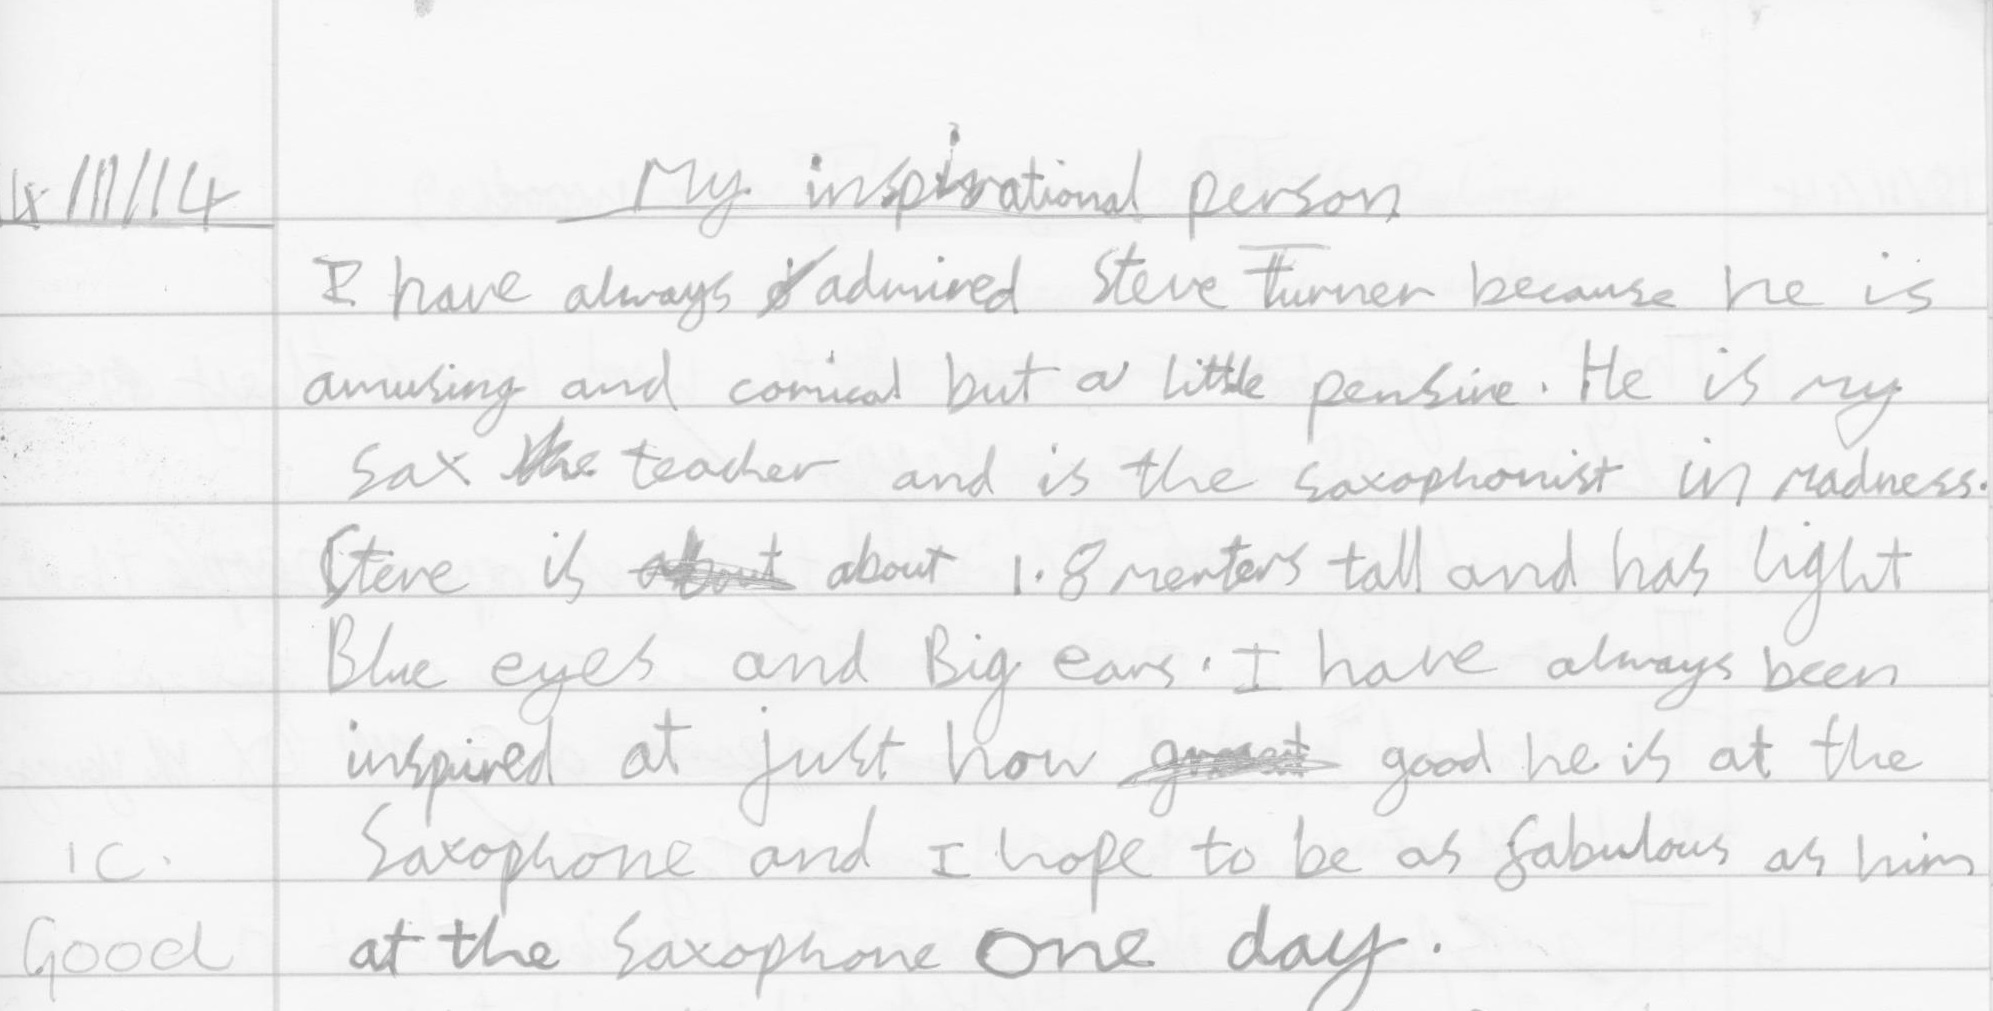 4/11/14 My inspirational person
I have always admired Steve Turner because he is
amusing and comical but a little pensive. He is my
sax the teacher and is the saxophonist in madness.
Steve is about about 1.8 menters tall and has light
Blue eyes and Big ears. I have always been
inspired at just how great good he is at the
1C. Saxophone and I hope to be as fabulous as him
Good at the Saxophone one day.